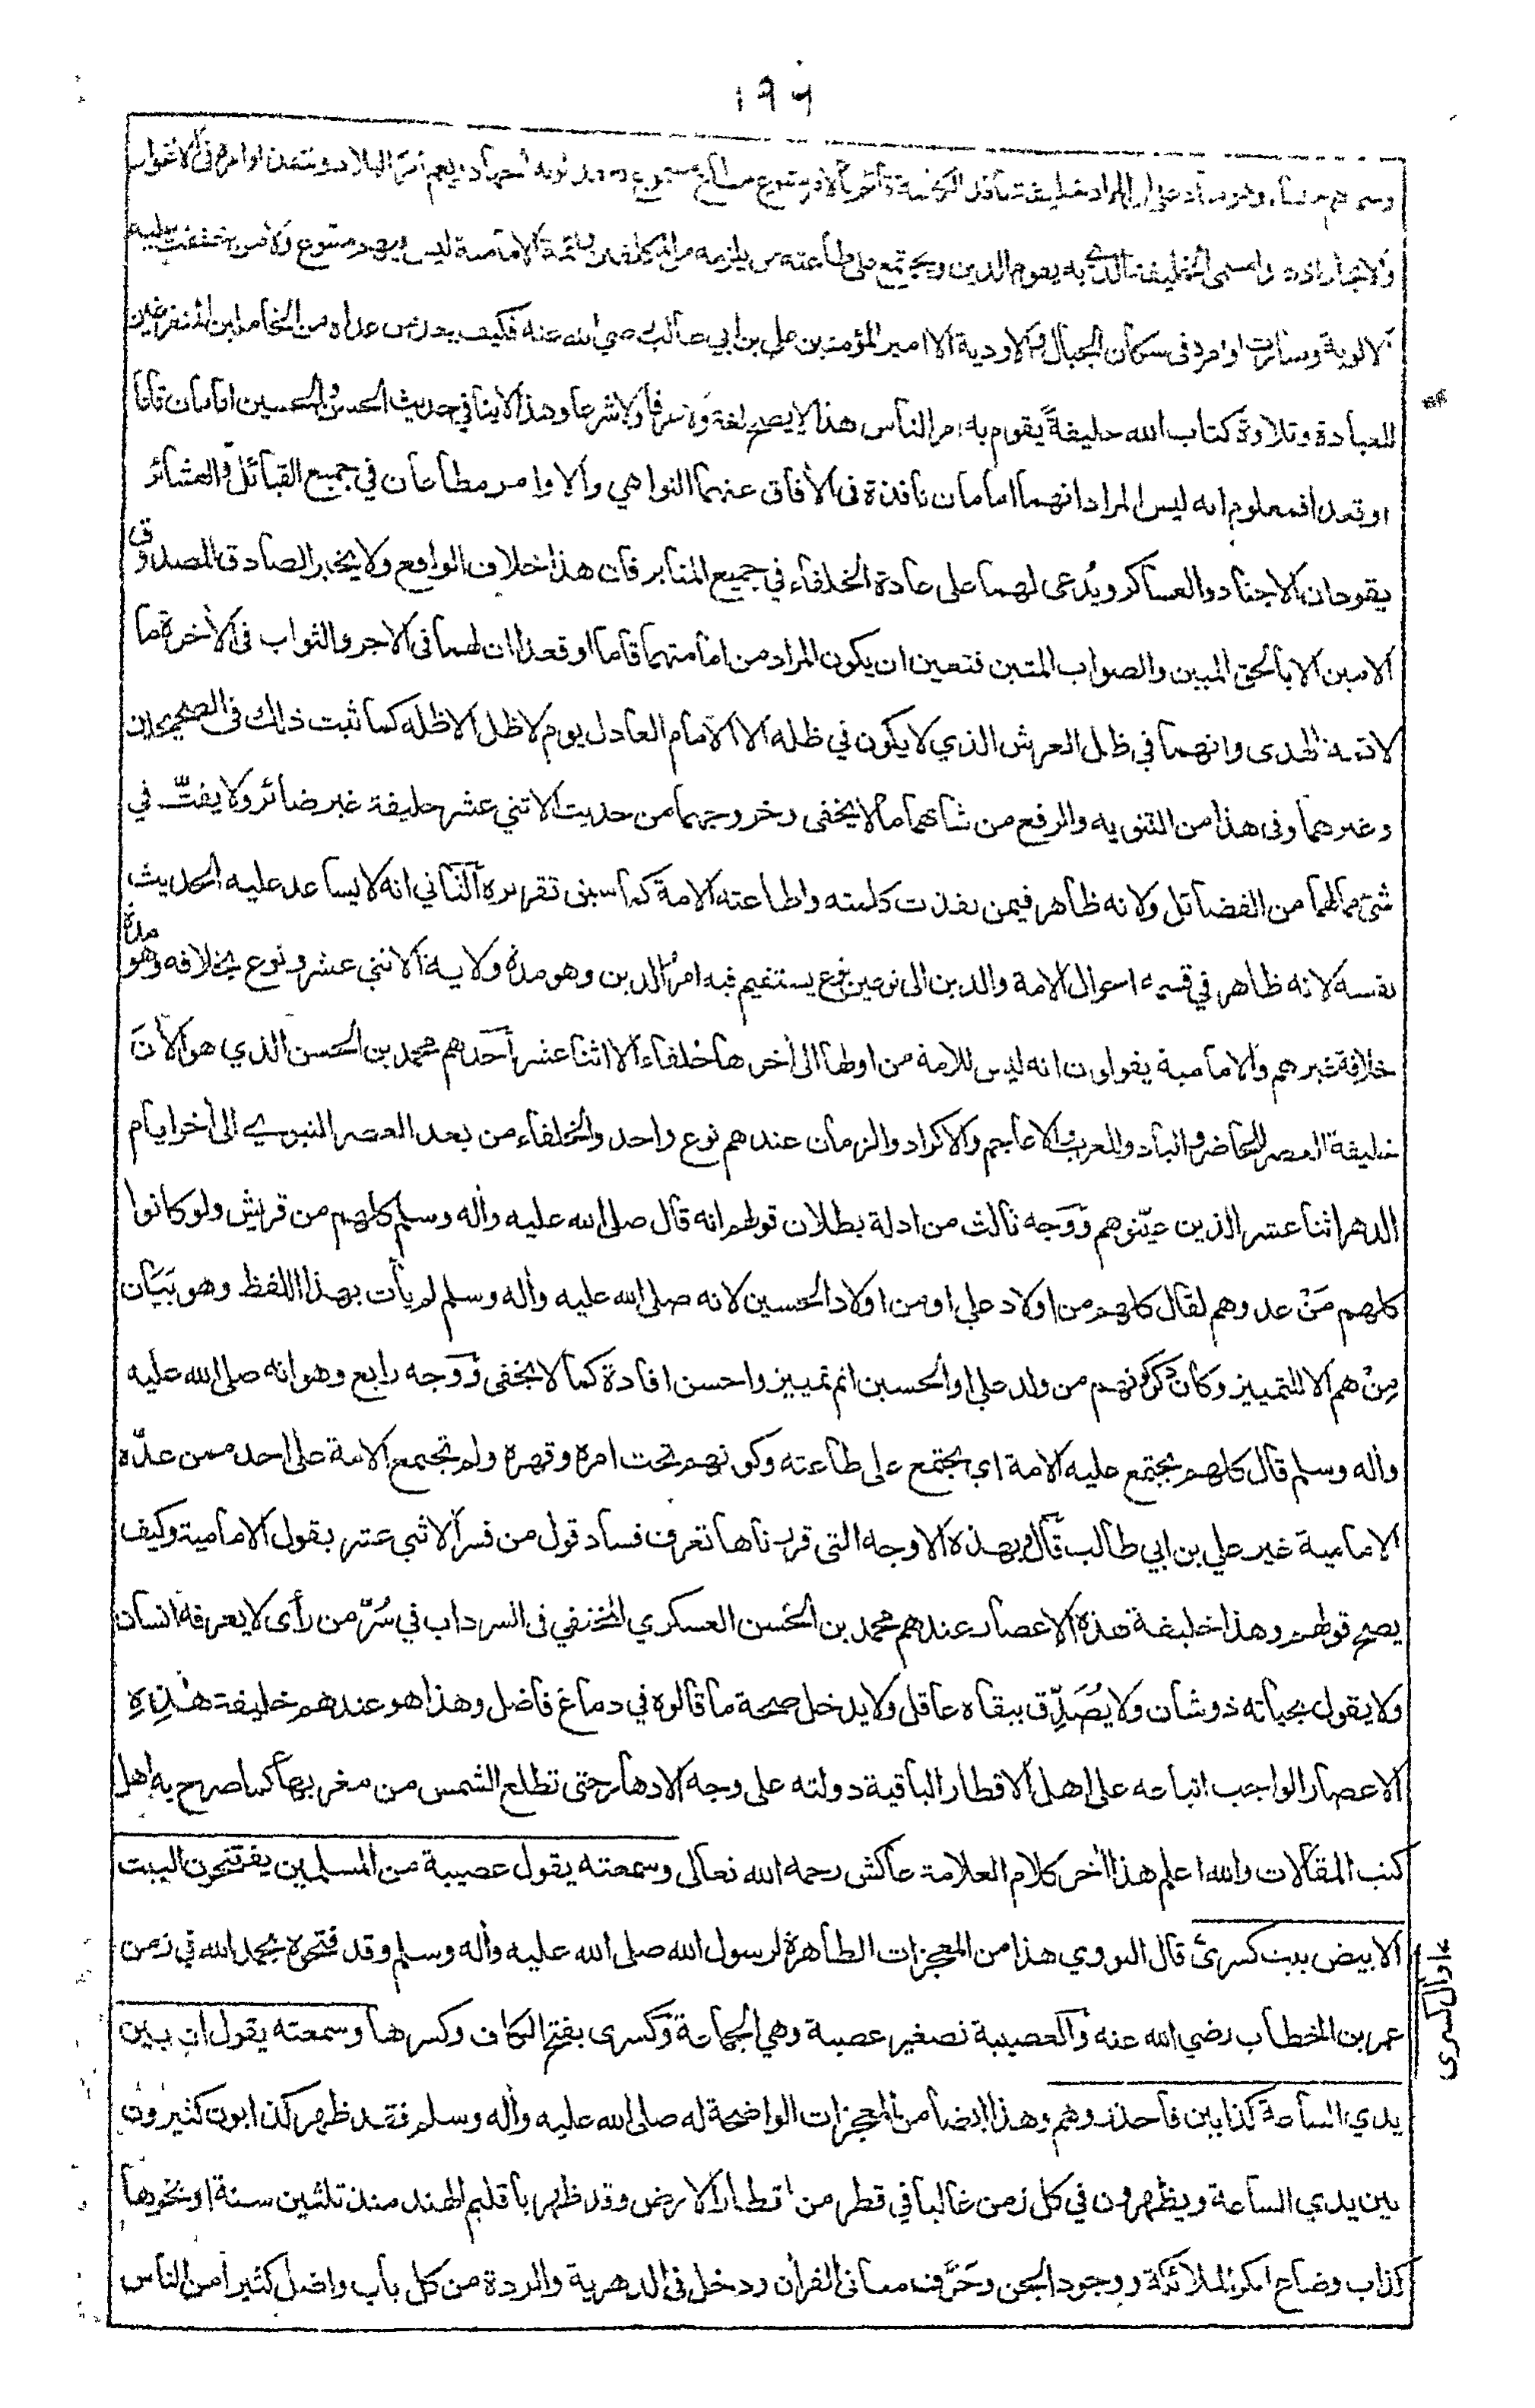 ١٩٦
والاغوار
والانجاد اذ المسمى الخليفة الذي به يقوم الدين ويجتمع على طاعته من يلزمه من المكلفين وائمة الامامية ليس فيهم متبوع ولا من خفقت عليه
الالوية وسارت اوامره فى سكان الجبال والاودية الا امير المؤمنين علي بن ابي طالب رضي الله عنه فكيف يعد من عداه من الخاملين المتفرغين
للعبادة وتلاوة كتاب الله خليفةً يقوم به امر الناس هذا لا يصح لغة ولا عرفا ولا شرعا وهذا لا ينافي حديث الحسن والحسين امامان قاما
او قعدا فمعلوم انه ليس المراد انهما امامان نافذة فى الأفاق عنهما النواهي والاوامر مطاعان في جميع القبائل والعشائر
يقودان الاجناد والعساكر ويُدعى لهما على عادة الخلفاء في جميع المنابر فان هذا خلاف الواقع ولا يخبر الصادق المصدوق
الامين الا بالحق المبين والصواب المتين فتعين ان يكون المراد من امامتهما قاما او قعدا ان لهما فى الاجر والثواب فى الأخرة ما
لائمة الهدى وانهما في ظل العرش الذي لا يكون في ظله الا الامام العادل يوم لا ظل الا ظله كما ثبت ذلك فى الصحيحين
وغيرهما وفى هذا من التنويه والرفع من شانهما ما لا يخفى وخروجهما من حديث الاثني عشر خليفة غير ضائر ولا يفتّ في
شئ مما لهما من الفضائل ولانه ظاهر فيمن نفذت كلمته واطاعته الامة كما سبق تقريره الثاني انه لا يساعد عليه الحديث
نفسه لانه ظاهر في قسمة احوال الامة والدين الى نوعين نوع يستقيم فيه امر الدين وهو مدة ولاية الاثني عشر ونوع بخلافه وهو مدة
خلافة غيرهم والامامية يقولون انه ليس للامة من اولها الى أخرها خلفاء الا اثنا عشر أحدهم محمد بن الحسن الذي هو الأن
خليفة العصر للحاضر والباد والعرب والاعاجم والاكراد والزمان عندهم نوع واحد والخلفاء من بعد العصر النبوي الى أخر ايام
الدهر اثنا عشر الذين عيّنوهم ووجه ثالث من ادلة بطلان قولهم انه قال صلى الله عليه وأله وسلم كلهم من قريش ولو كانوا
كلهم مَنْ عدوهم لقال كلهم من اولاد علي او من اولاد الحسين لانه صلى الله عليه وأله وسلم لم يأت بهذا اللفظ وهو بَيَان
مِنْ هم الا للتمييز وكان ذكر كونهم من ولد علي او الحسين اتم تمييز واحسن افادة كما لا يخفى ووجه رابع وهو انه صلى الله عليه
وأله وسلم قال كلهم يجتمع عليه الامة اي يجتمع على طاعته وكونهم تحت امره وقهره ولم تجتمع الامة على احد ممن عدّه
الامامية غير علي بن ابي طالب قال وبهذه الاوجه التى قررناها تعرف فساد قول من فسر الاثني عشر بقول الامامية وكيف
يصح قولهم وهذا خليفة هذه الاعصار عندهم محمد بن الحسن العسكري المختفي فى السرداب في سُرّ من رأى لا يعرفه انسان
ولا يقول بحياته ذو شان ولا يُصَدِّق ببقاه عاقل ولا يدخل صحة ما قالوه في دماغ فاضل وهذا هو عندهم خليفة هٰذِهِ
الاعصار الواجب اتباعه على اهل الاقطار الباقية دولته على وجه الادهار حتى تطلع الشمس من مغربها كما صرح به اهل
كتب المقالات والله اعلم هذا أخر كلام العلامة عاكش رحمه الله تعالى وسمعته يقول عصيبة من المسلمين يفتتحون البيت
الابيض بيت كسرى قال النووي هذا من المعجزات الظاهرة لرسول الله صلى الله عليه وأله وسلم وقد فتحوه بحمد الله في زمن
عمر بن الخطاب رضي الله عنه والعصيبة تصغير عصبة وهي الجماعة وكسرى بفتح الكاف وكسرها وسمعته يقول ان بين
يدي الساعة كذابين فاحذروهم وهذا ايضا من المعجزات الواضحة له صلى الله عليه وأله وسلم فقد ظهر كذابون كثيرون
بين يدي الساعة ويظهرون في كل زمن غالبا في قطر من اقطار الارض وقد ظهر باقليم الهند منذ ثلثين سنة او نحوها
كذاب وضاح انكر الملائكة ووجود الجن وحَرَّف معانى القرأن ودخل فى الدهرية والردة من كل باب واضل كثيرا من الناس
او أل كسرى